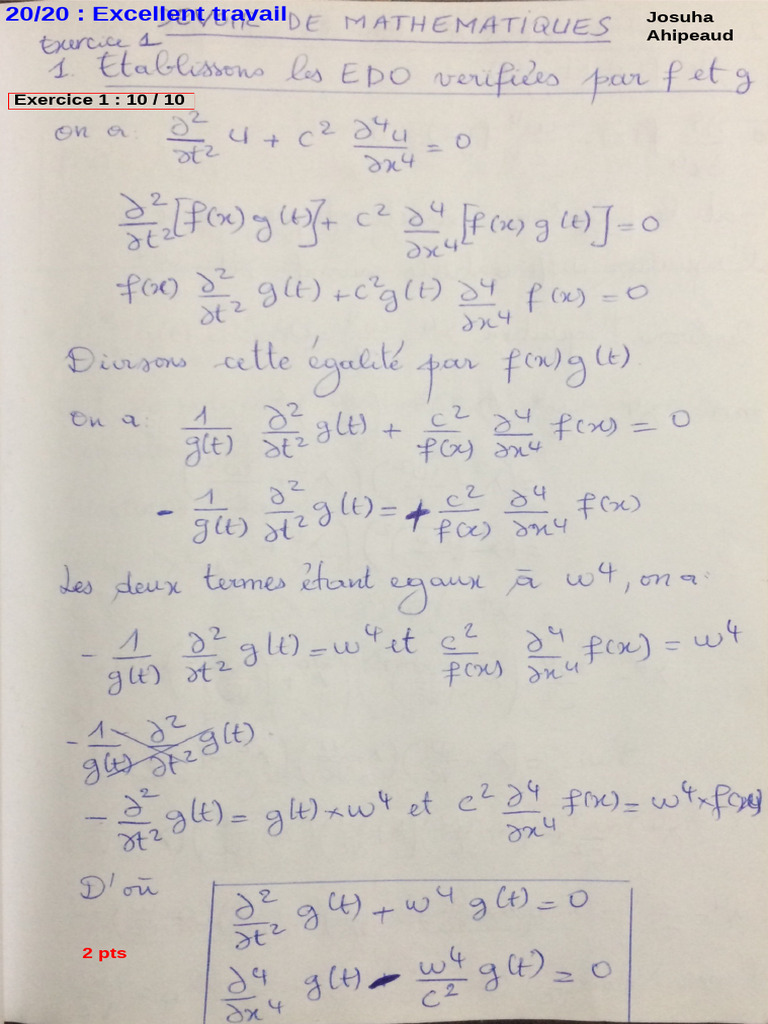 20/20 : Excellent travail
DEVOIR DE MATHEMATIQUES
Josuha
Ahipeaud
Exercice 1
1. Etablissons les EDO verifiées par f et g
Exercice 1 : 10 / 10
on a: ∂²/∂t² u + c² ∂⁴u/∂x⁴ = 0
∂²/∂t² [f(x) g(t)] + c² ∂⁴/∂x⁴ [f(x) g(t)] = 0
f(x) ∂²/∂t² g(t) + c² g(t) ∂⁴/∂x⁴ f(x) = 0
Divisons cette égalité par f(x) g(t)
on a: 1/g(t) ∂²/∂t² g(t) + c²/f(x) ∂⁴/∂x⁴ f(x) = 0
- 1/g(t) ∂²/∂t² g(t) = + c²/f(x) ∂⁴/∂x⁴ f(x)
Les deux termes étant egaux à w⁴, on a:
- 1/g(t) ∂²/∂t² g(t) = w⁴ et c²/f(x) ∂⁴/∂x⁴ f(x) = w⁴
- 1/g(t) ∂²/∂t² g(t)
- ∂²/∂t² g(t) = g(t) × w⁴ et c² ∂⁴/∂x⁴ f(x) = w⁴ × f(x)
D'où
∂²/∂t² g(t) + w⁴ g(t) = 0
2 pts
∂⁴/∂x⁴ g(t) - w⁴/c² g(t) = 0